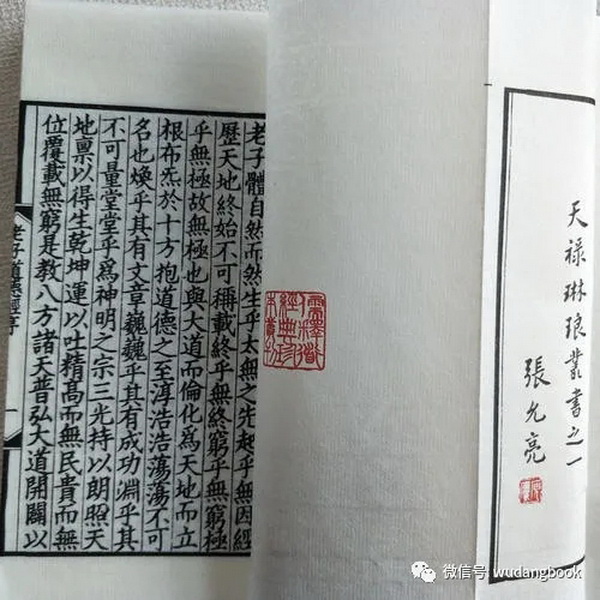 天禄琳琅叢書之一
張允亮
儒釋道
經典珍
老子體自然而然生乎太無之先起乎無因經
歷天地終始不可稱載終乎無終窮乎無窮極
乎無極故無極也與大道而倫化爲天地而立
根布炁於十方抱道德之至淳浩浩蕩蕩不可
名也煥乎其有文章巍巍乎其有成功淵乎其
不可量堂堂乎爲神明之宗三光持以朗照天
地稟以得生乾坤運以吐精髙而無民貴而無
位覆載無窮是教八方諸天普弘大道開闢以
老子道德經序
一
微信号: wudangbook